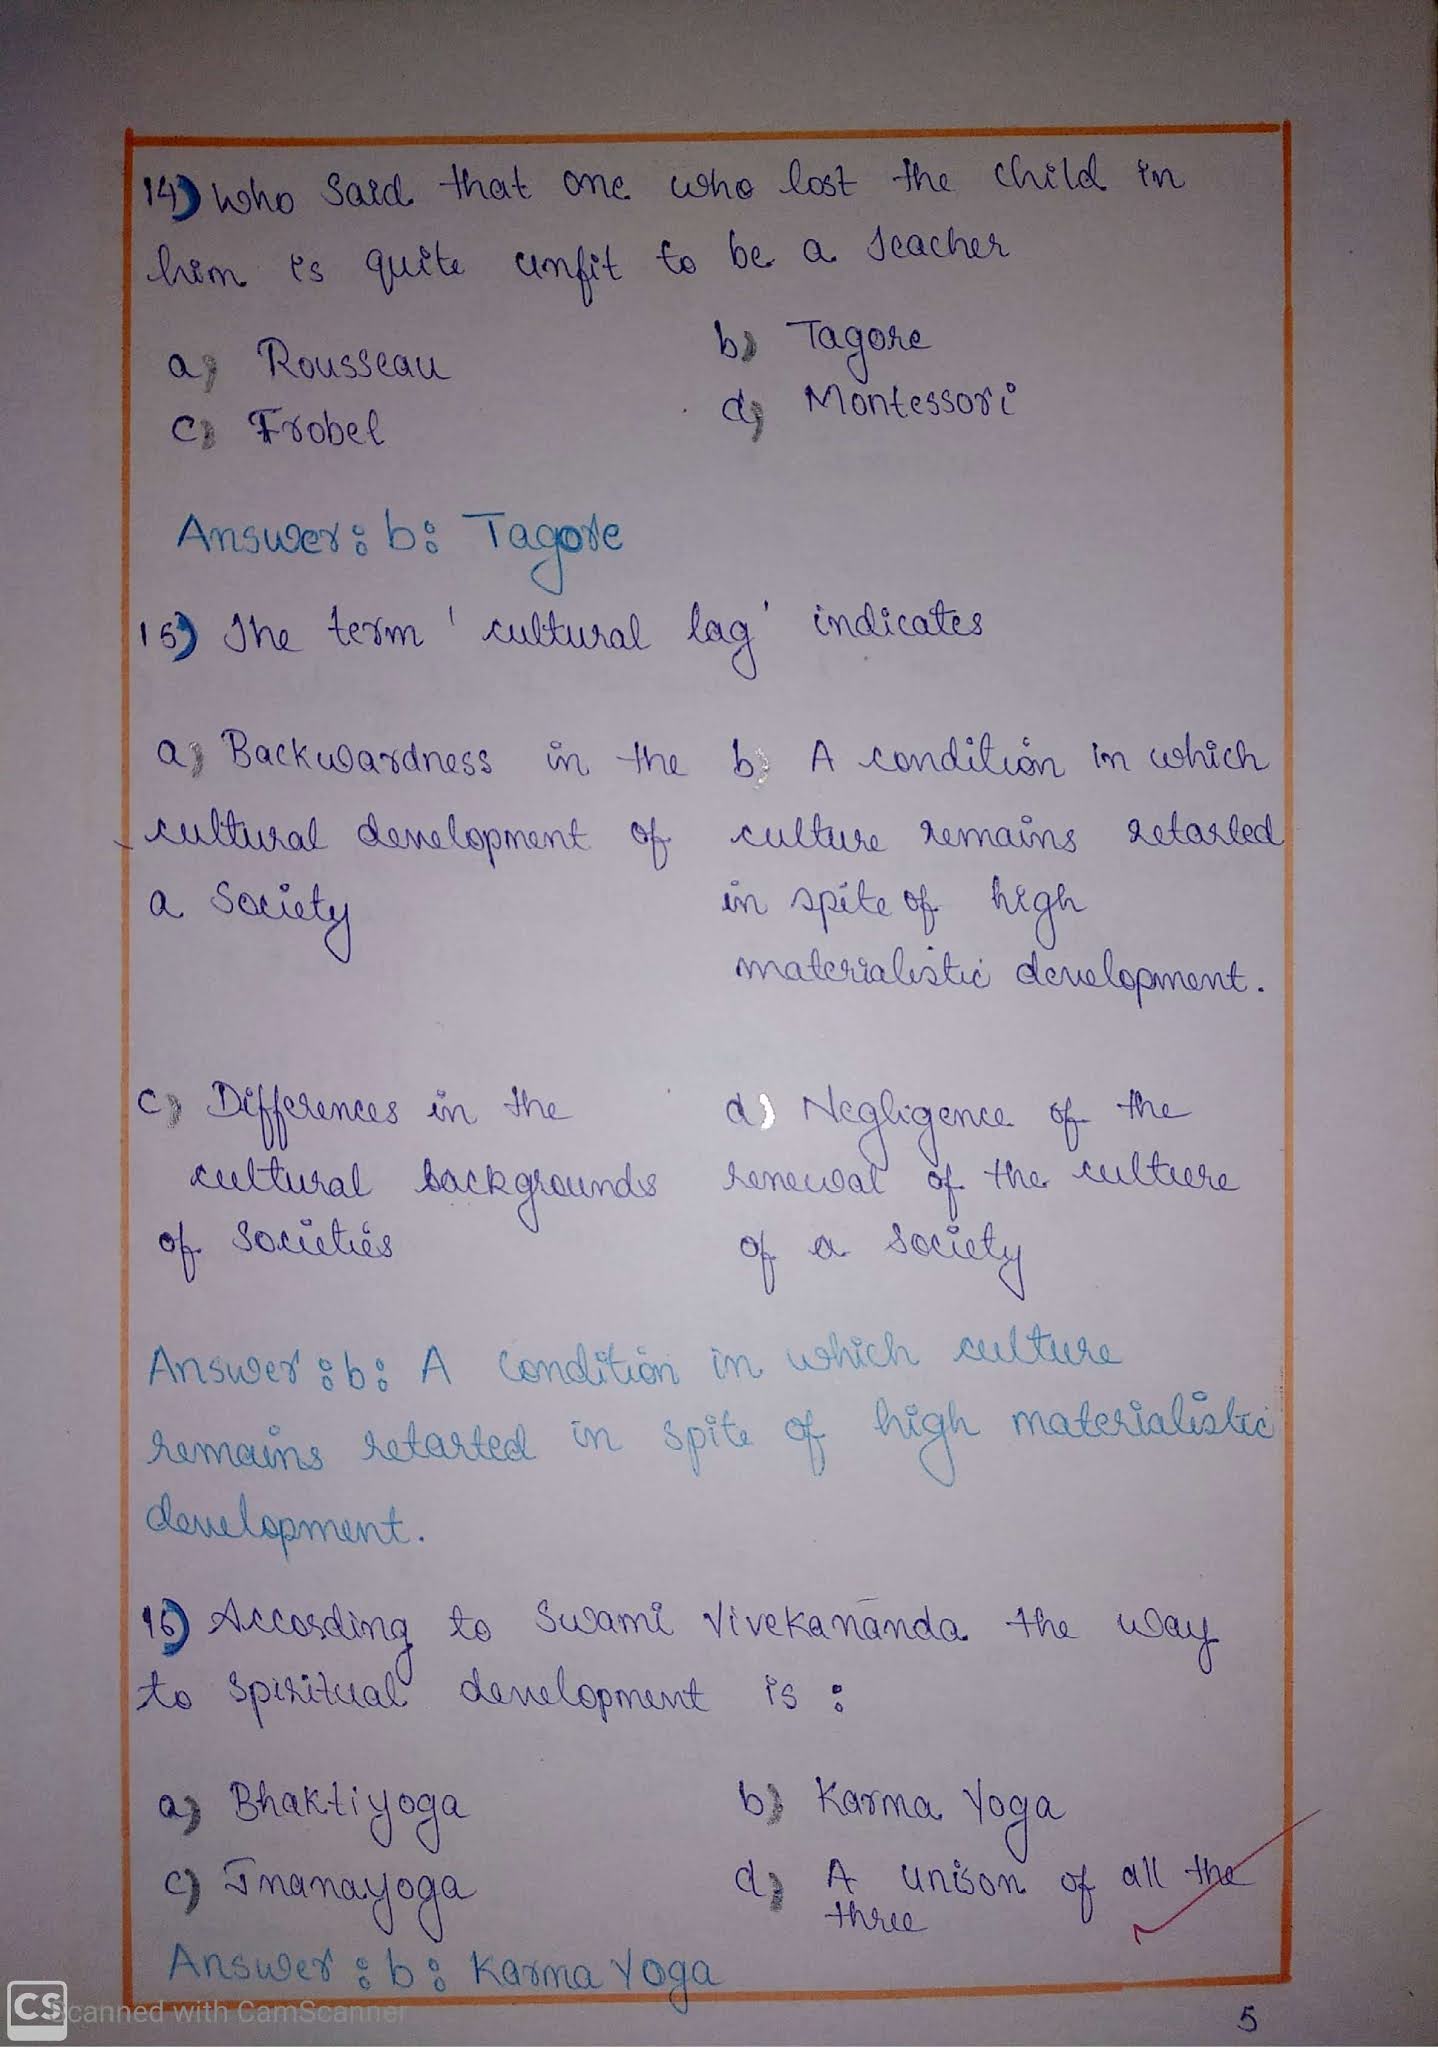 14) Who Said that one who lost the child in
him is quite unfit to be a Teacher
a) Rousseau
b) Tagore
c) Frobel
d) Montessori
Answer: b: Tagore
15) The term 'cultural lag' indicates
a) Backwardness in the
cultural development of
a Society
b) A condition in which
culture remains retarted
in spite of high
materialistic development.
c) Differences in the
cultural backgrounds
of Societies
d) Negligence of the
renewal of the culture
of a Society
Answer: b: A Condition in which culture
remains retarted in spite of high materialistic
development.
16) According to Swami Vivekananda the way
to Spiritual development is :
a) Bhaktiyoga
b) Karma Yoga
c) Jnanayoga
d) A unison of all the
three
Answer: b: Karma Yoga
CS Scanned with CamScanner
5